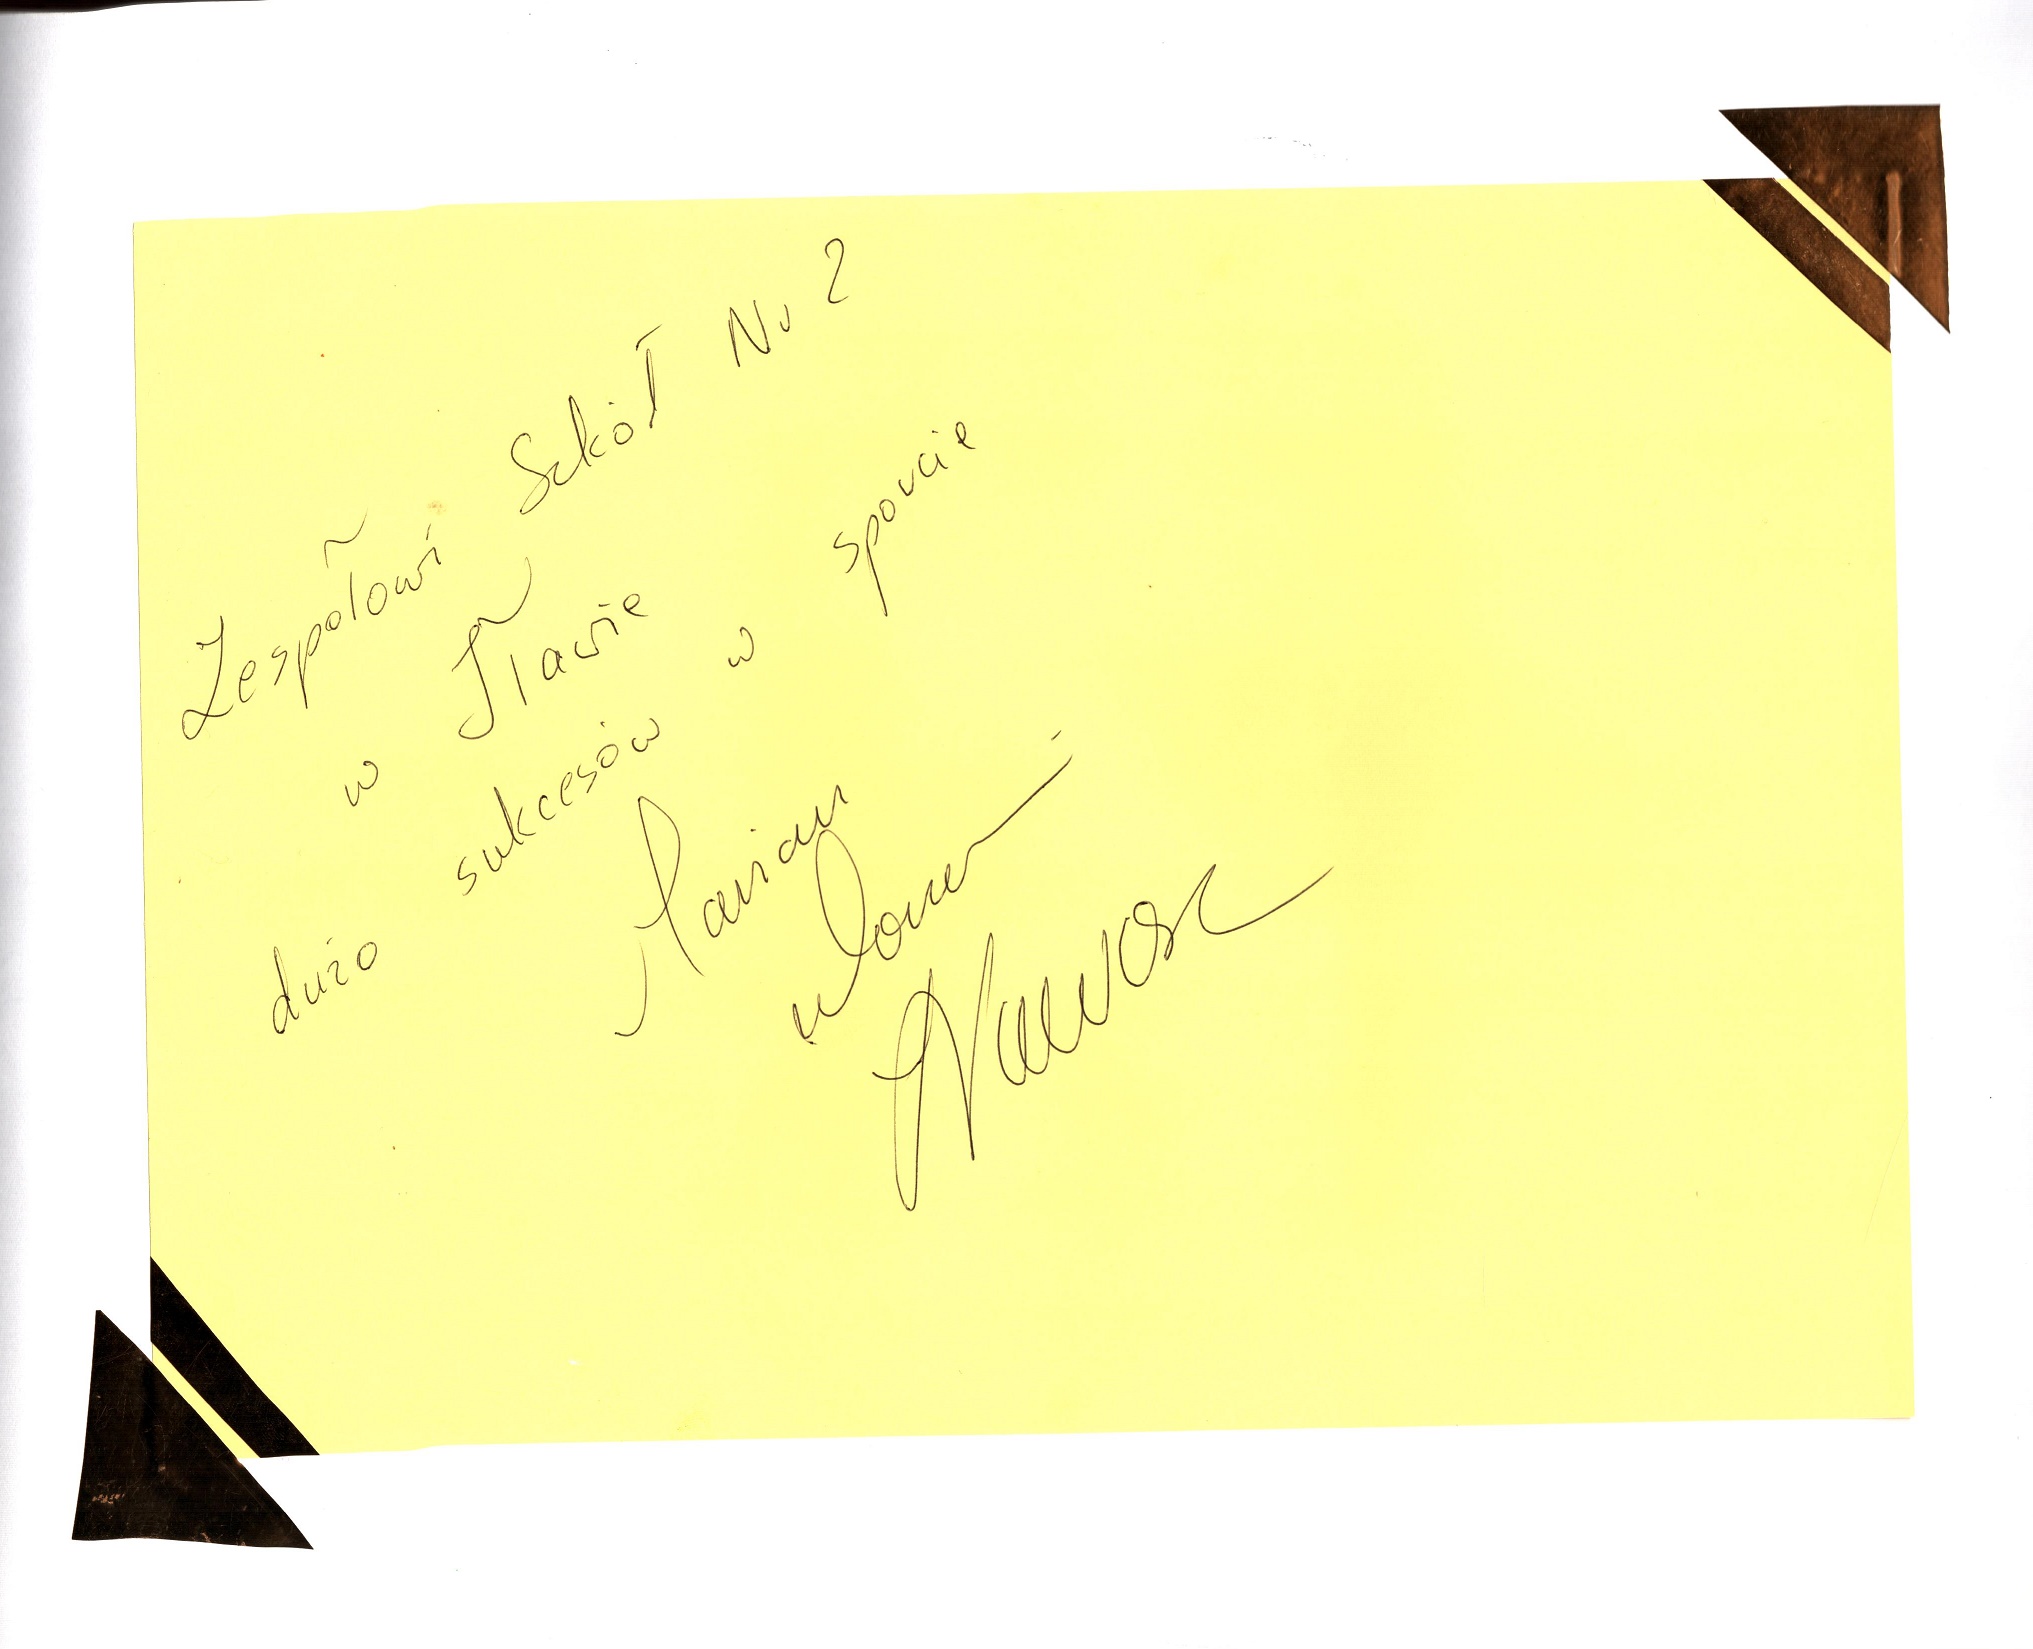 Zespołowi Szkół Nr 2
w Iławie
dużo sukcesów w sporcie
Marian